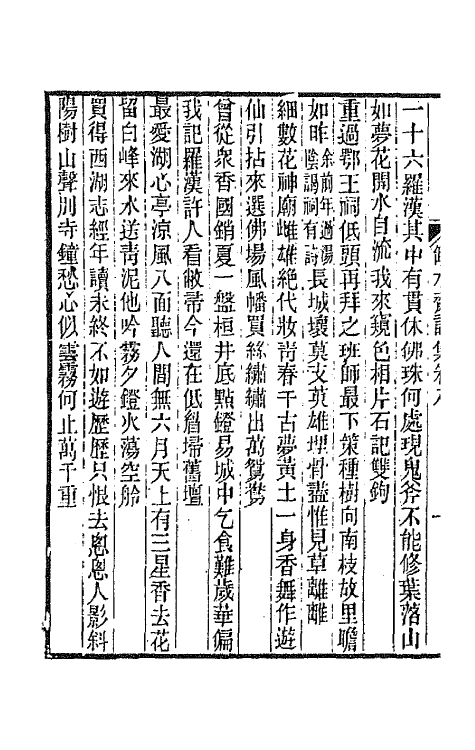 一十六羅漢其中有貫休佛珠何處現鬼斧不能修葉落山
如夢花開水自流我來窺色相片石記雙鉤
重過鄂王祠低頭再拜之班師最下策種樹向南枝故里瞻
如昨余前年過湯陰謁祠有詩長城壞莫支英雄埋骨盡惟見草離離
細數花神廟雌雄絕代妝青春千古夢黃土一身香舞作遊
仙引拈來選佛場風幡買絲繡繡出萬鴛鴦
曾從眾香國銷夏一盤桓井底點鐙易城中乞食難歲華偏
我記羅漢許人看敝帚今還在低掃舊壇
最愛湖心亭涼風八面聽人間無六月天上有三星香去花
留白峰來水送青泥他吟霧夕鐙火蕩空舲
買得西湖志經年讀未終不如遊歷歷只恨去悤悤人影斜
陽樹山聲別寺鐘愁心似雲霧何止萬千重